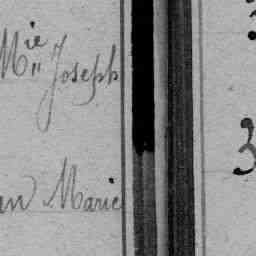 Mie Joseph
an Marie
3